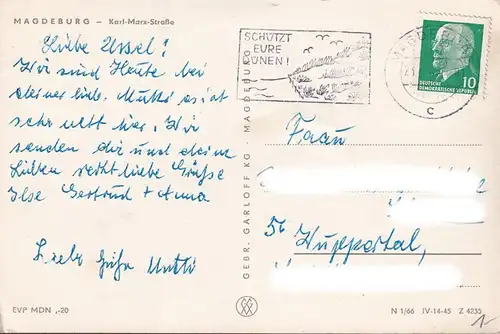 MAGDEBURG – Karl-Marx-Straße
Liebe Ursel!
Wir sind Heute bei
deiner lieb. Mutti es ist
sehr nett hier. Wir
senden dir und deine
Lieben recht liebe Grüße
Ilse Gertrud + Anna
Grüße Mutti
EVP MDN ,-20
GEBR. GARLOFF KG · MAGDEBURG
SCHÜTZT
EURE
DÜNEN!
MAGDEBURG
c
DEUTSCHE
DEMOKRATISCHE REPUBLIK
10
Frau
56 Wuppertal,
N 1/66 IV-14-45 Z 4235